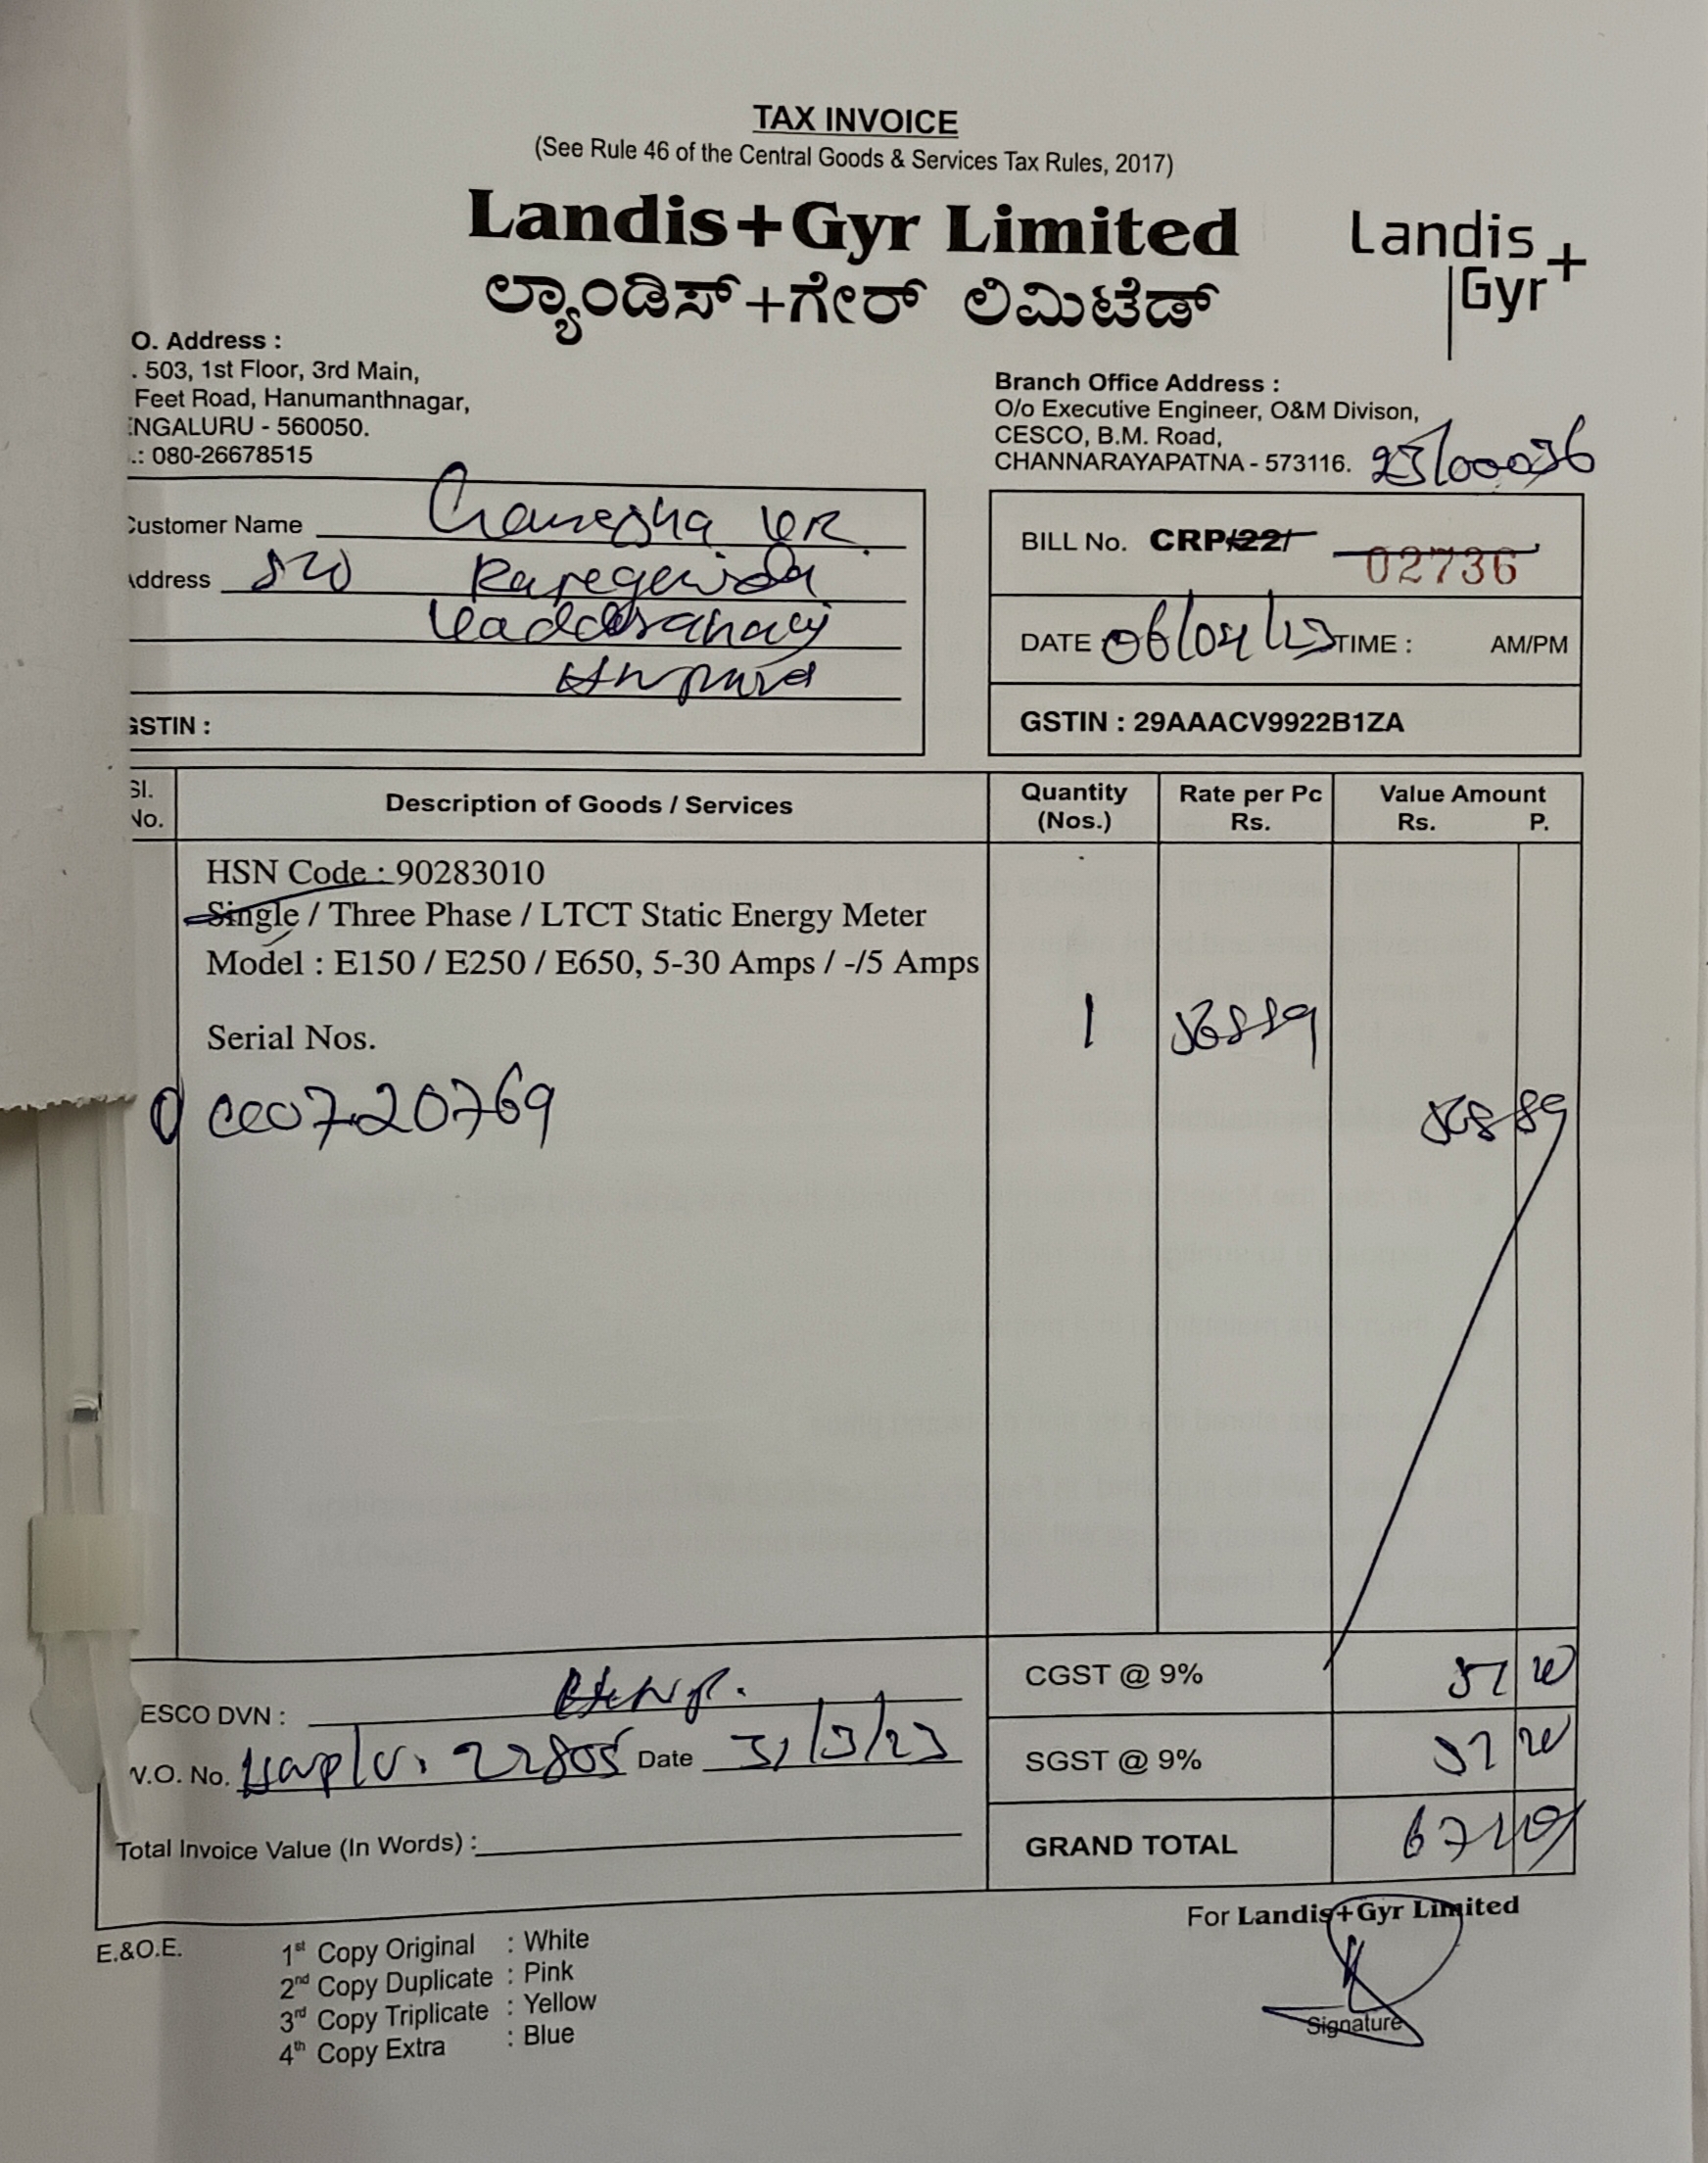 TAX INVOICE
(See Rule 46 of the Central Goods & Services Tax Rules, 2017)
Landis+Gyr Limited
ಲ್ಯಾಂಡಿಸ್+ಗೇರ್ ಲಿಮಿಟೆಡ್
Landis
Gyr+
O. Address :
. 503, 1st Floor, 3rd Main,
Feet Road, Hanumanthnagar,
ENGALURU - 560050.
.: 080-26678515
Branch Office Address :
O/o Executive Engineer, O&M Divison,
CESCO, B.M. Road,
CHANNARAYAPATNA - 573116.
23/00036
Customer Name
Address
GSTIN :
BILL No. CRP/22/ 02736
DATE 06/04/23 TIME : AM/PM
GSTIN : 29AAACV9922B1ZA
Sl. No. Description of Goods / Services Quantity (Nos.) Rate per Pc Rs. Value Amount Rs. P.
HSN Code : 90283010
Single / Three Phase / LTCT Static Energy Meter
Model : E150 / E250 / E650, 5-30 Amps / -/5 Amps
Serial Nos.
1 568.89
720769
568 89
CGST @ 9%
SGST @ 9%
GRAND TOTAL
ESCO DVN :
W.O. No. 22805 Date 31/3/23
Total Invoice Value (In Words) :
For Landis+Gyr Limited
Signature
E.&O.E.
1st Copy Original : White
2nd Copy Duplicate : Pink
3rd Copy Triplicate : Yellow
4th Copy Extra : Blue